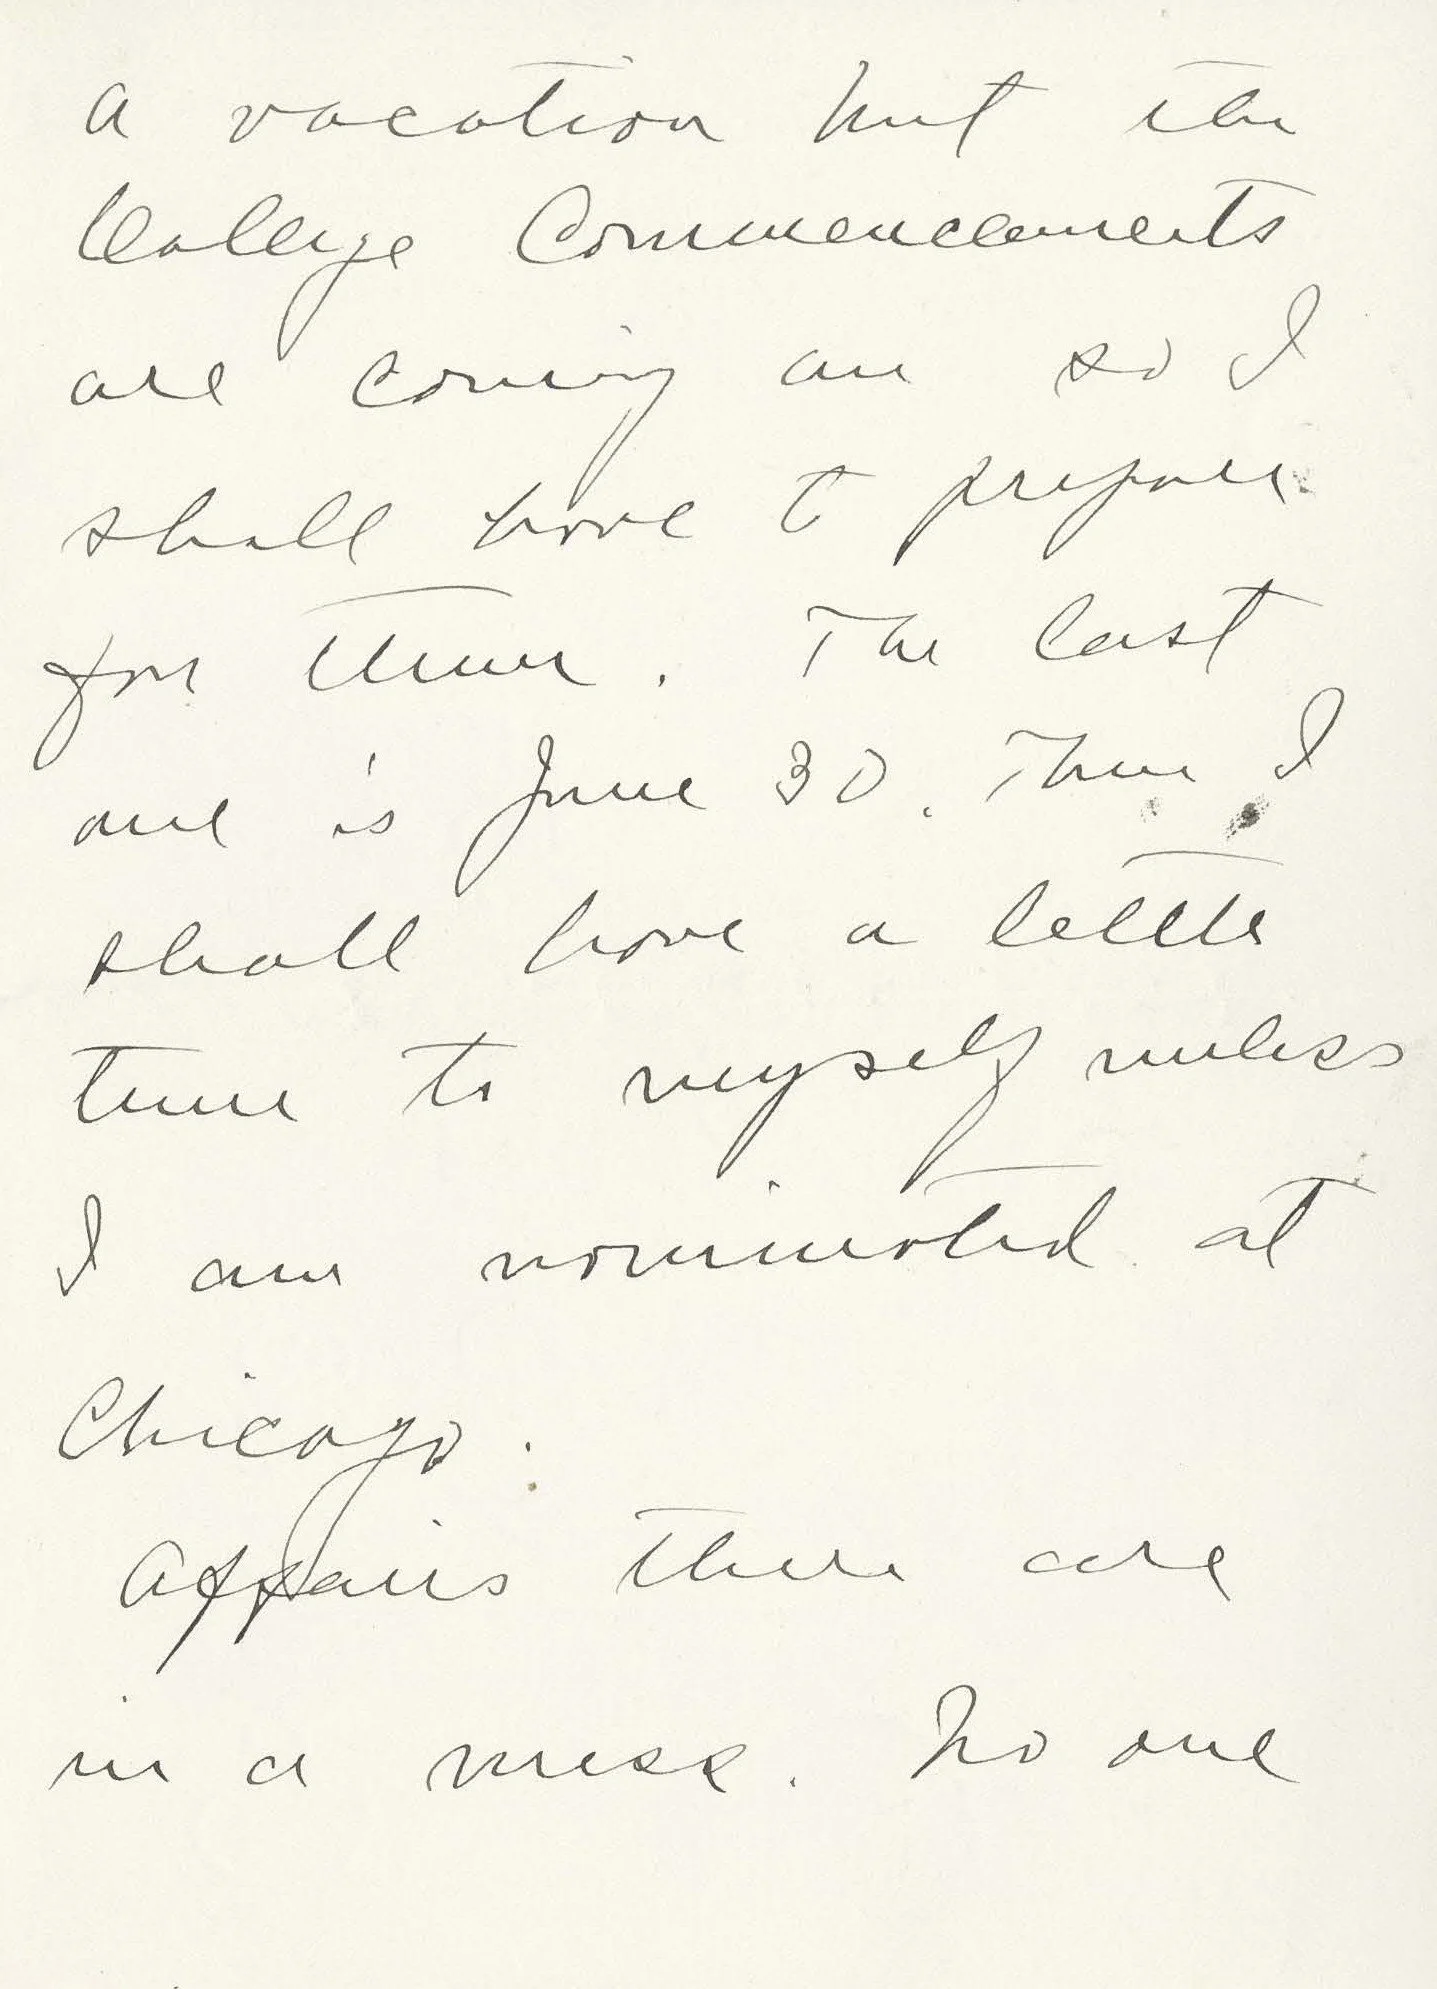 a vacation but the
College Commencements
are coming on so I
shall have to prepare
for them. The last
one is June 30. Then I
shall have a little
time to myself unless
I am nominated at
Chicago.
Affairs there are
in a mess. No one